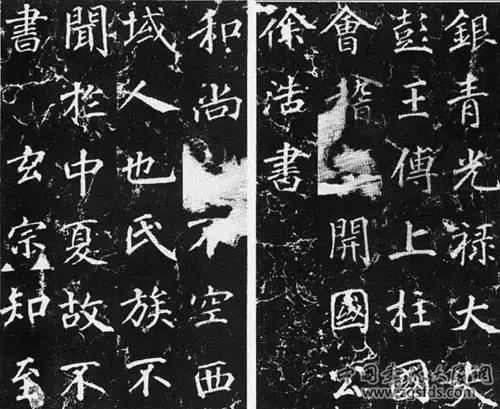 銀青光禄大夫
彭王傅上柱國
會稽開國公
徐浩書
和尚不空西
域人也氏族不
聞於中夏故不
書玄宗知至
www.zgsfds.com